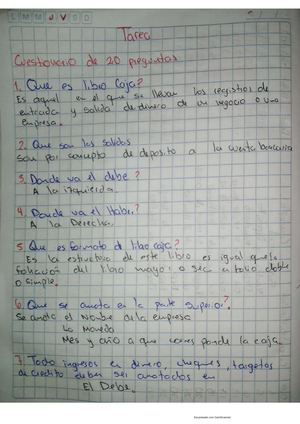 L M M J V S D
Tarea
Cuestionario de 20 preguntas
1. Que es libro Caja?
Es aquel en el que se llevan los registros de
entrada y salida de dinero de un negocio o una
empresa.
2. Que son las salidas
son por concepto de deposito a la cuenta bancaria
3. Donde va el debe?
A la izquierda.
4. Donde va el Haber?
A la Derecha.
5. Que es formato de libro caja?
Es la estructura de este libro es igual que la
foliacion del libro mayor o sea a folio doble
o simple.
6. Que se anota en la parte superior?
Se anota el Nombre de la empresa
La Moneda
Mes y año a que corresponde la caja.
7. Todo ingresos en dinero, cheques, targetas
de credito deben ser anotados en
El Debe.
Escaneado con CamScanner